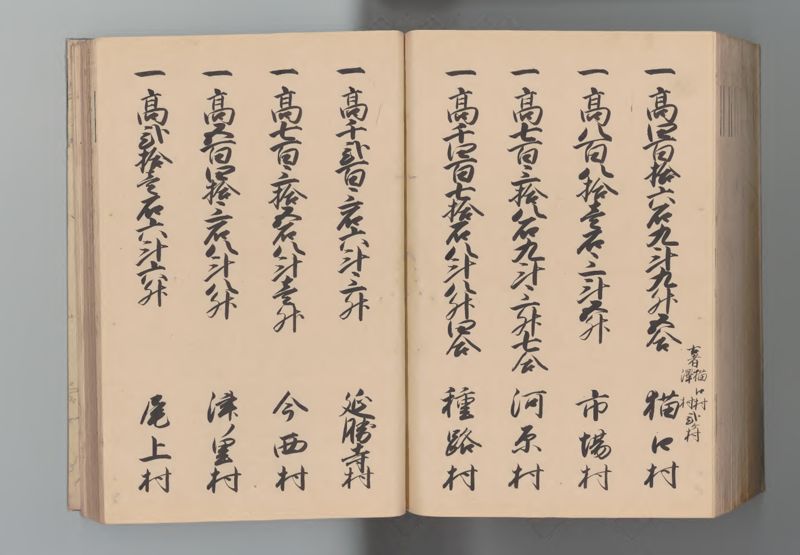 一 高四百拾六石九斗九升五合 猫口村
一 高八百八拾壱石三斗五升 市場村
一 高七百三拾八石九斗三升七合 河原村
一 高千四百七拾石八斗八升四合 種路村
一 高千弐百三石六斗三升 延勝寺村
一 高七百三拾五石八斗壱升 今西村
一 高五百四拾三石八斗八升 津ノ里村
一 高弐拾壱石六斗六升 尾上村